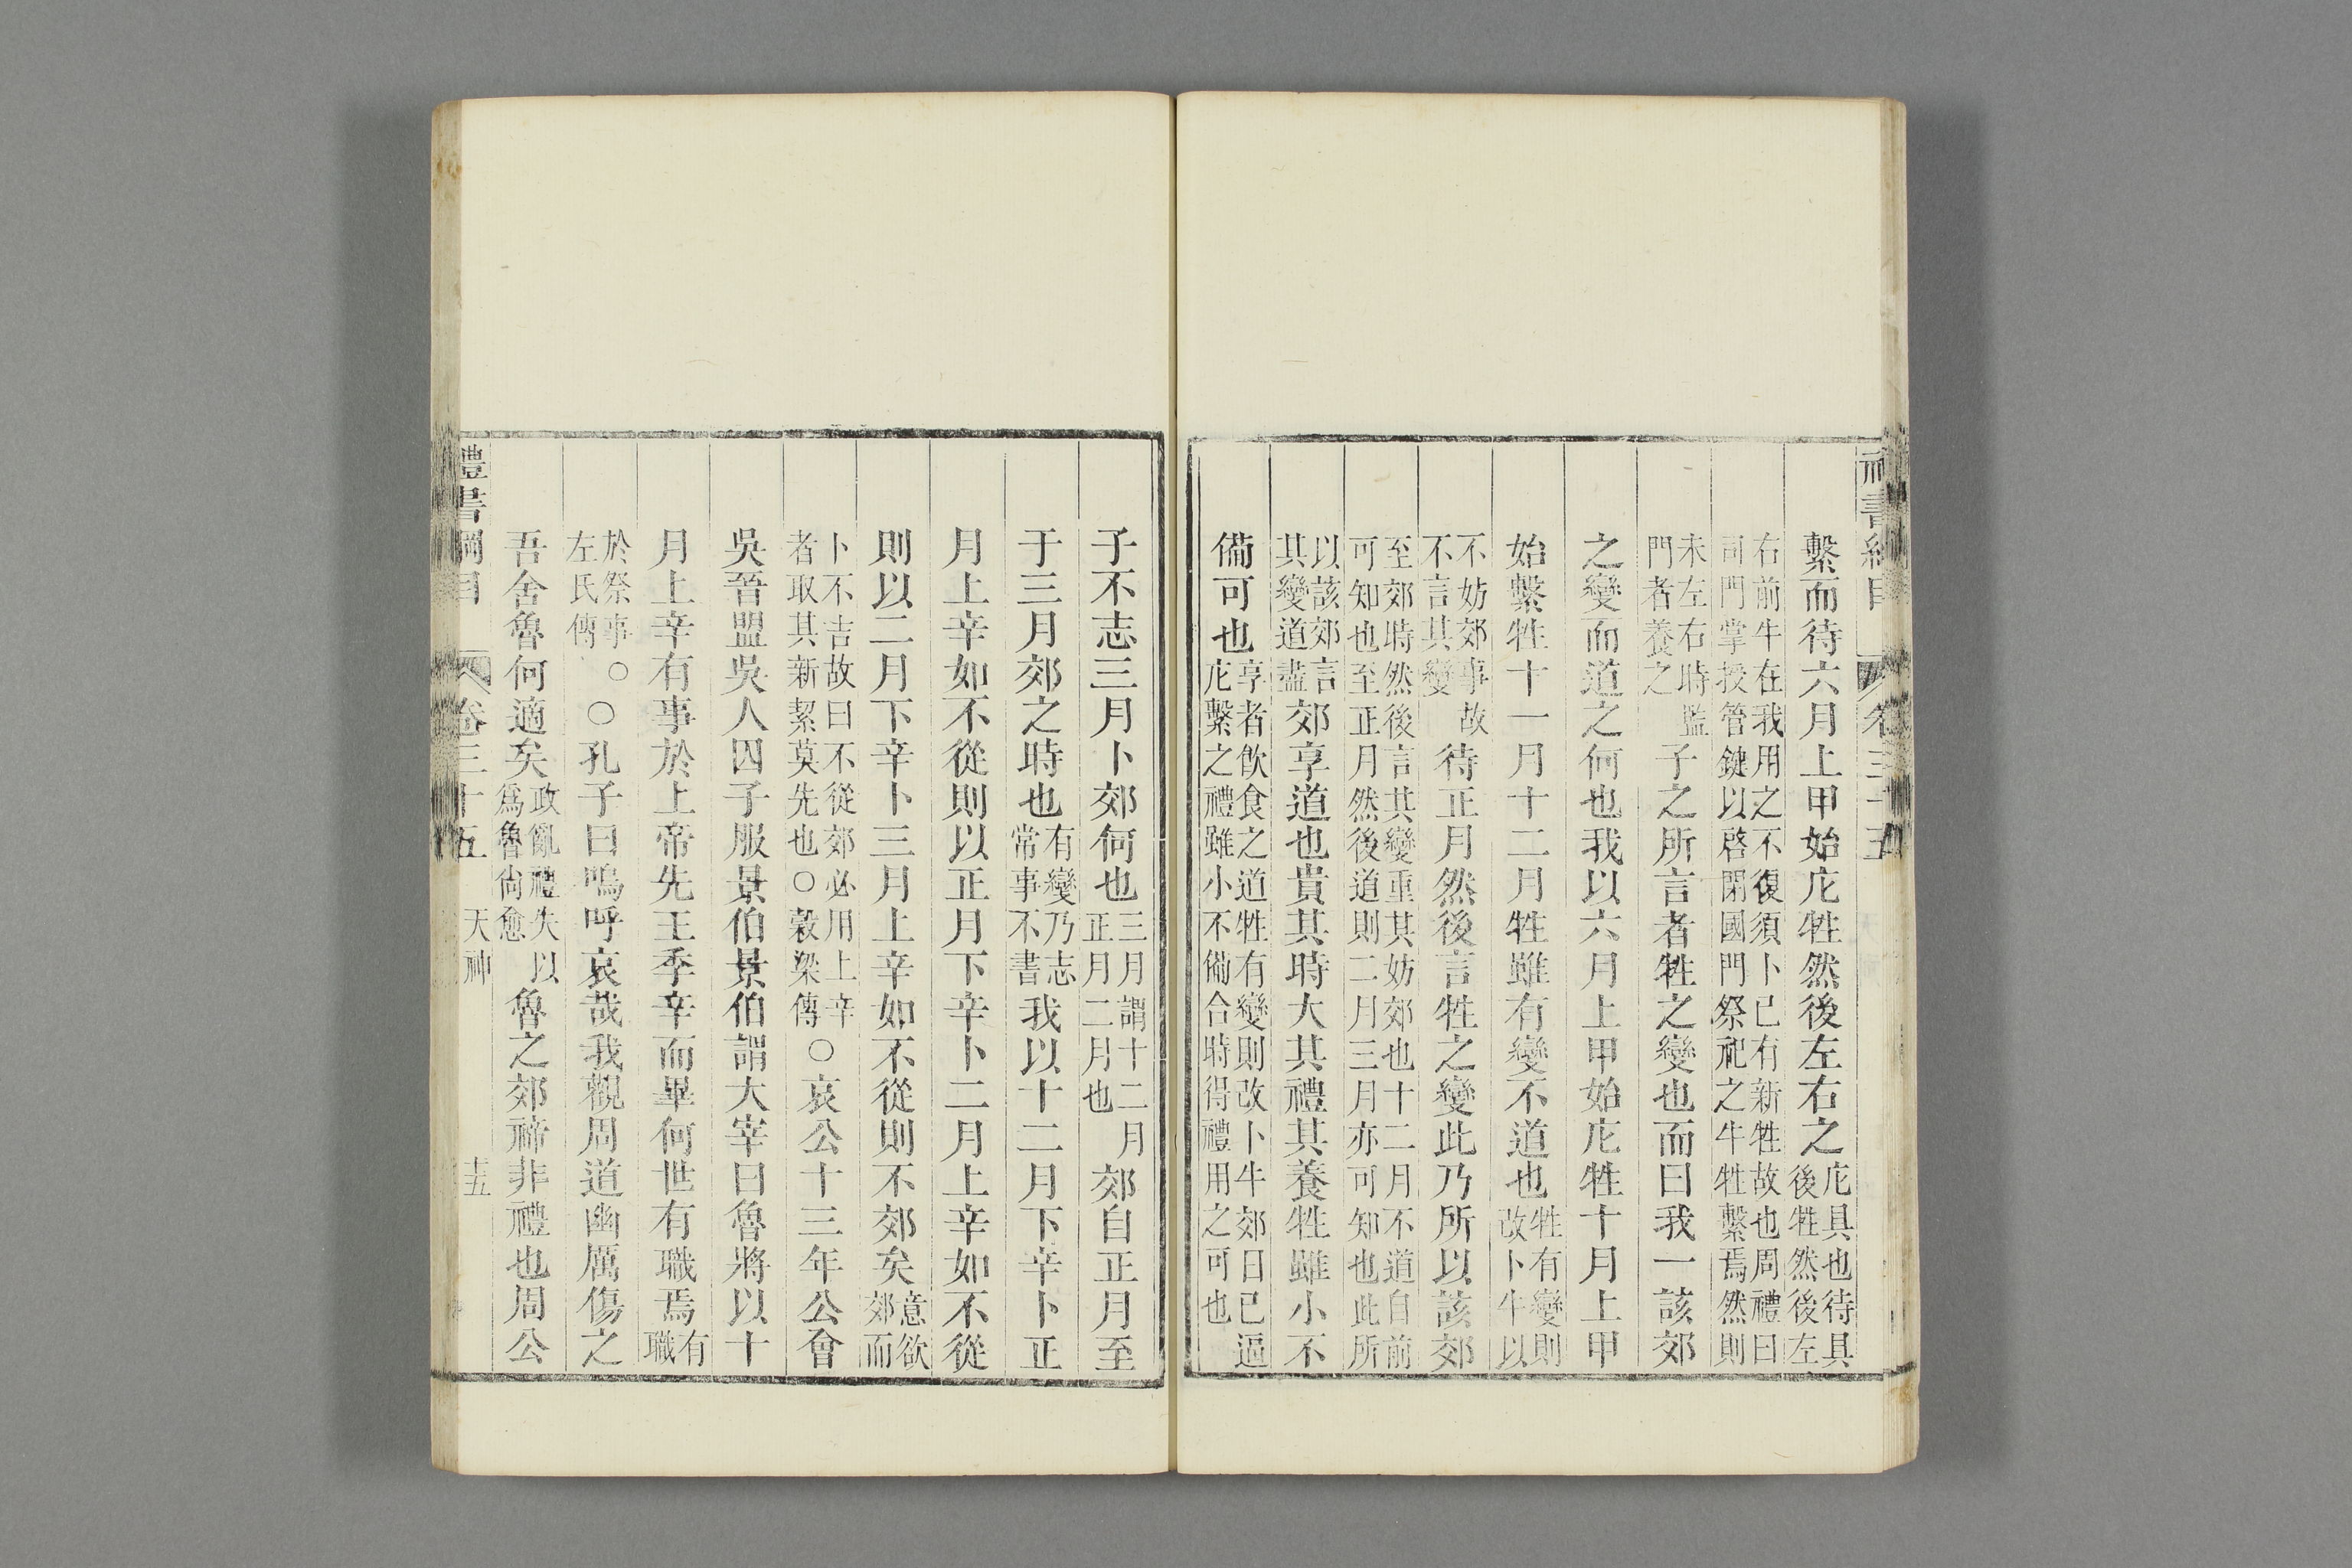 禮書綱目 卷三十五
繫而待六月上甲始庀牲然後左右之庀具也待具後牲然後左
右前牛在我用之不復須卜已有新牲故也周禮曰司門掌授管鍵以啓閉國門祭祀之牛牲繫焉然則
未左右時監門者養之子之所言者牲之變也而曰我一該郊
之變而道之何也我以六月上甲始庀牲十月上甲
始繫牲十一月十二月牲雖有變不道也牲有變則改卜牛以
不妨郊事故不言其變待正月然後言牲之變此乃所以該郊
至郊時然後言其變重其妨郊也十二月不道自前可知也至正月然後道則二月三月亦可知也此所
以該郊言其變道盡郊享道也貴其時大其禮其養牲雖小不
備可也享者飲食之道牲有變則改卜牛郊日已逼庀繫之禮雖小不備合時得禮用之可也
子不志三月卜郊何也三月謂十二月正月二月也郊自正月至
于三月郊之時也有變乃志常事不書我以十二月下辛卜正
月上辛如不從則以正月下辛卜二月上辛如不從
則以二月下辛卜三月上辛如不從則不郊矣意欲郊而
卜不吉故曰不從郊必用上辛者取其新絜莫先也○穀梁傳○哀公十三年公會
吳晉盟吳人囚子服景伯景伯謂大宰曰魯將以十
月上辛有事於上帝先王季辛而畢何世有職焉有職
於祭事○左氏傳○孔子曰嗚呼哀哉我觀周道幽厲傷之
吾舍魯何適矣政亂禮失以爲魯尙愈魯之郊禘非禮也周公
禮書綱目 卷三十五 天神 十五